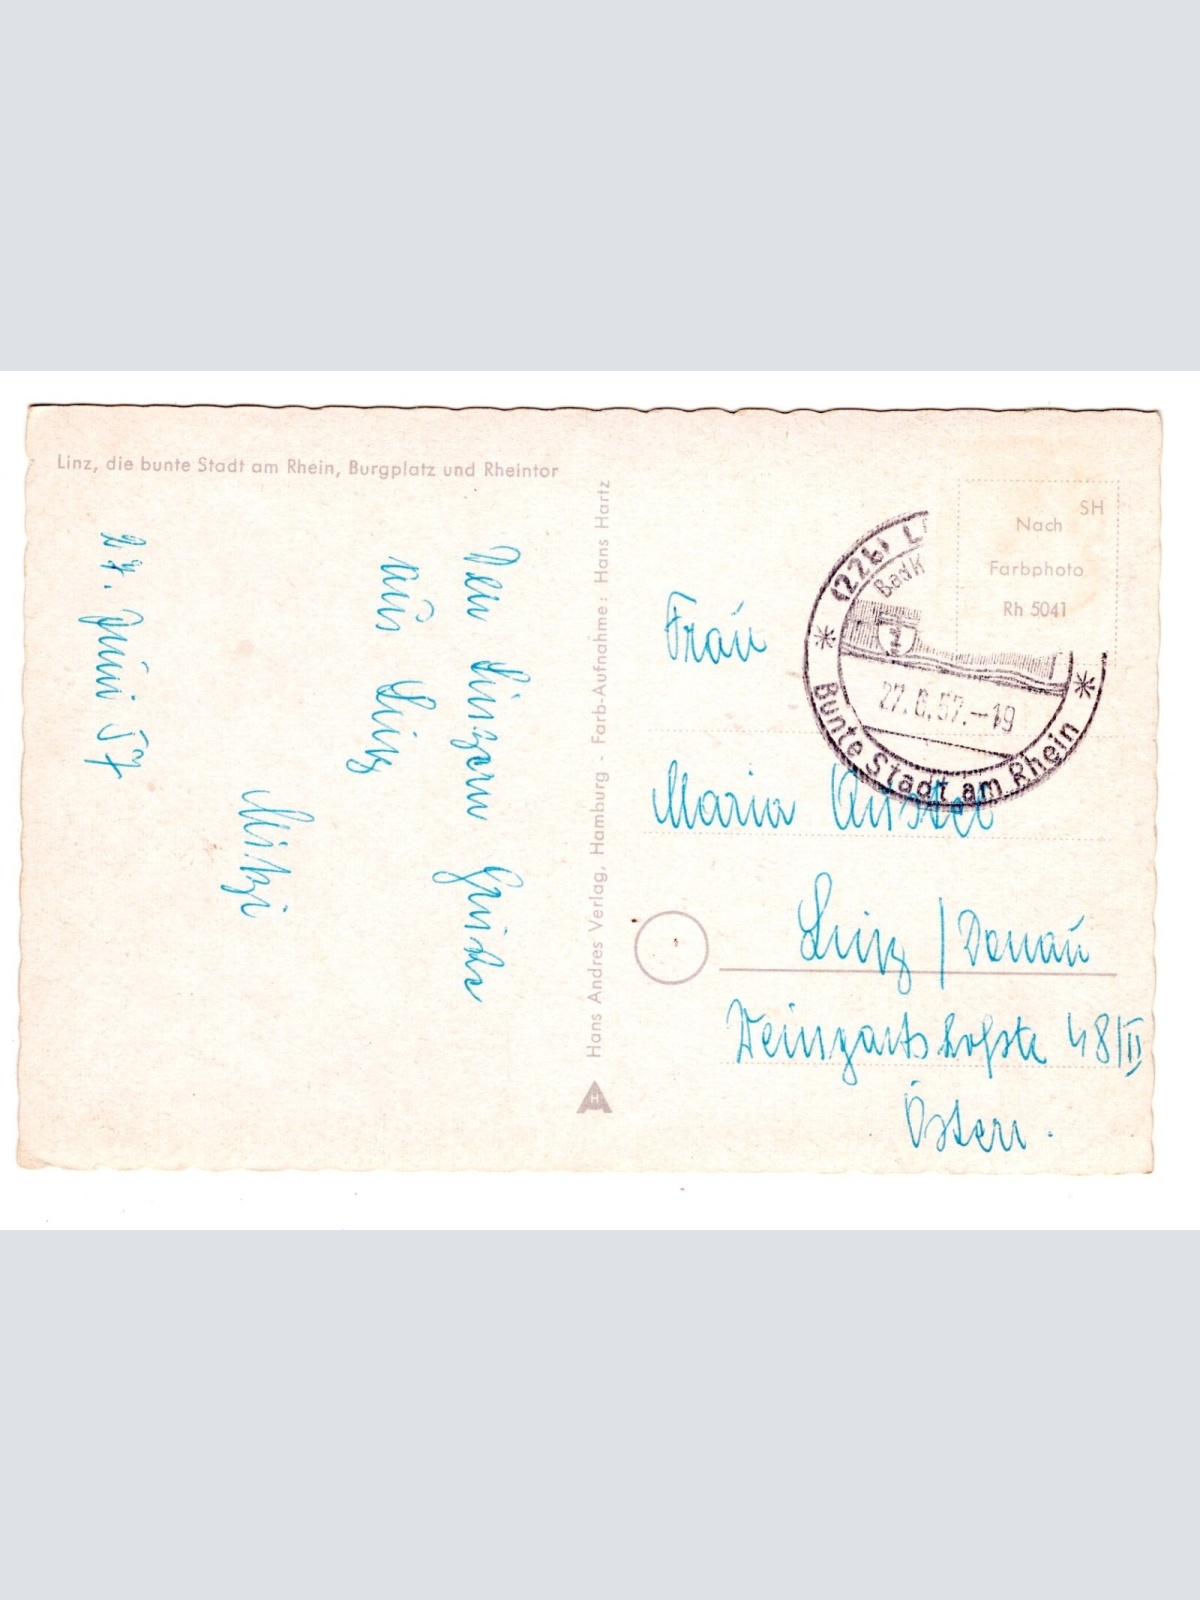 Linz, die bunte Stadt am Rhein, Burgplatz und Rheintor
Den Linzern Grüße
aus Linz
Mitzi
27. Juni 57
Hans Andres Verlag, Hamburg - Farb-Aufnahme: Hans Hartz
H
SH
Nach
Farbphoto
Rh 5041
(22b) L
Bad K
27.6.57.-19
Bunte Stadt am Rhein
Frau
Maria
Linz / Donau
Weingartshofstr 48/II
Österr.